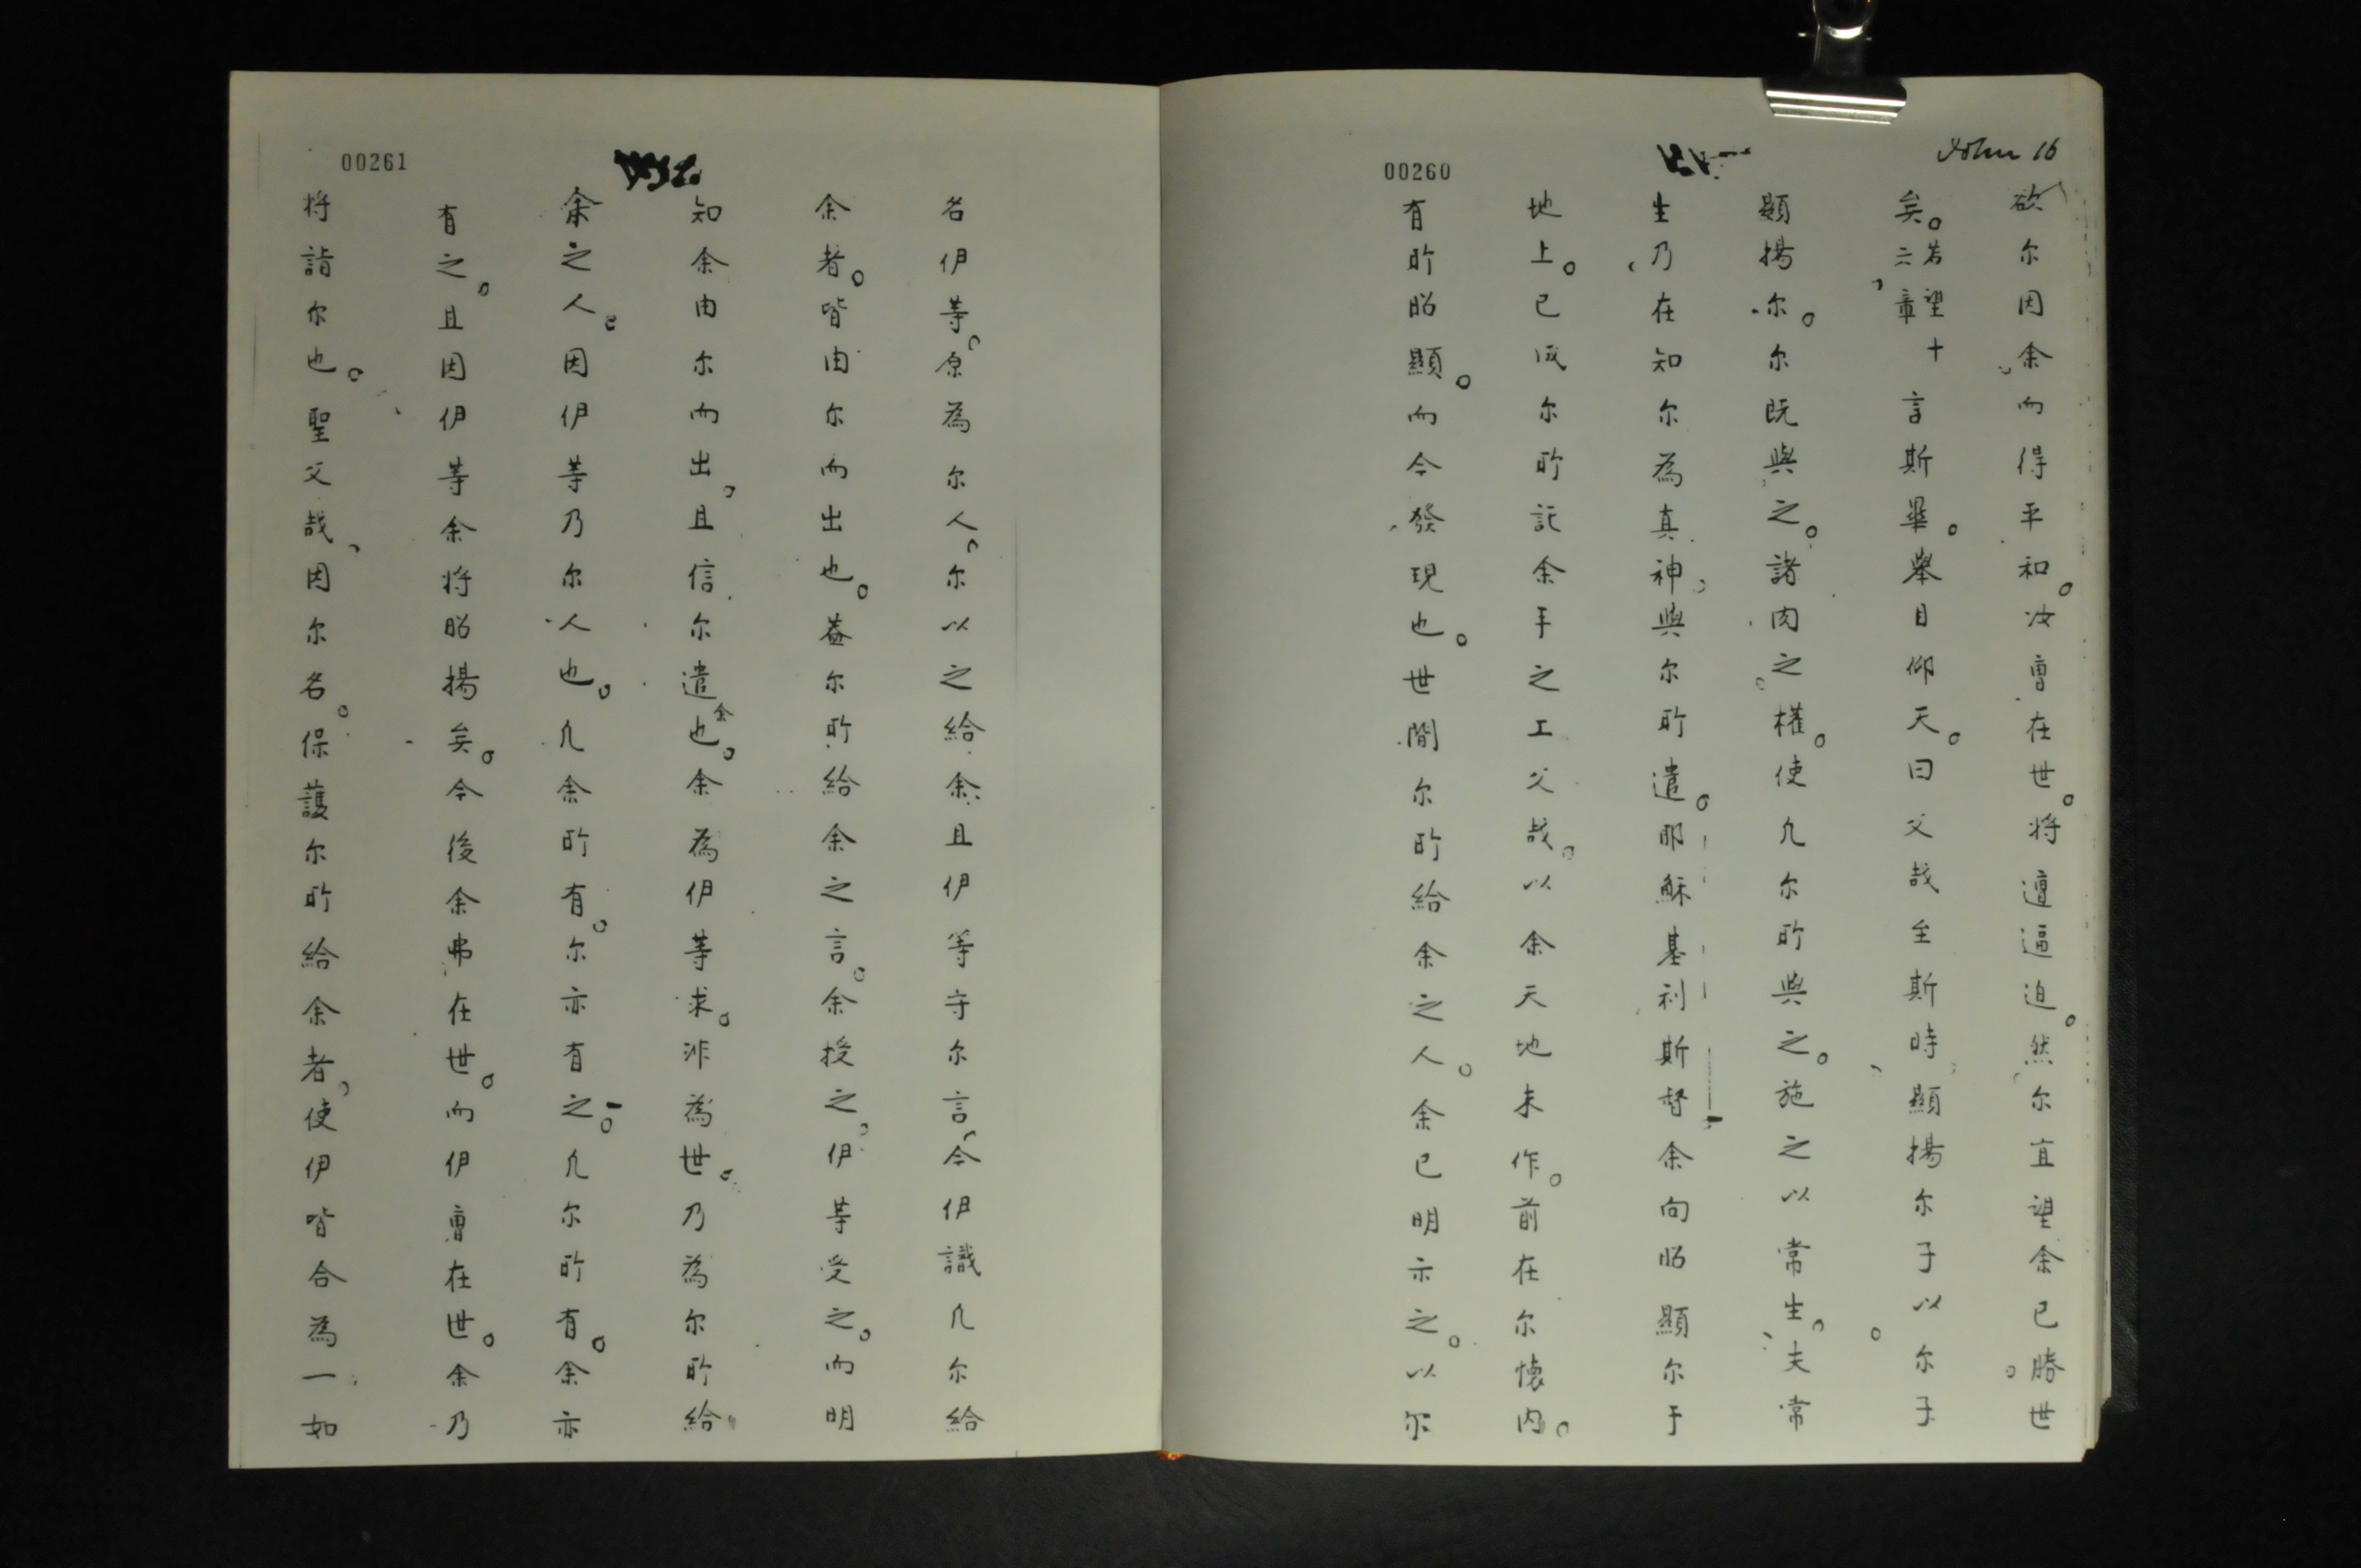 John 16
00260
欲尔因余而得平和。汝曹在世。将遭逼迫。然尔直望余已勝世
矣。若望十六章 言斯畢。舉目仰天。曰父哉至斯時顯揚尔子以尔子
顯揚尔。尔既與之。諸肉之權。使凢尔所與之。施之以常生。夫常
生乃在知尔為真神與尔所遣。耶穌基利斯督余向昭顯尔于
地上。已成尔所託余手之工父哉。以余天地未作。前在尔懐内。
有所昭顯。而今發現也。世間尔所給余之人。余已明示之。以尔
00261
名伊等。原為尔人。尔以之給余且伊等守尔言。今伊識凢尔給
余者。皆由尔而出也。蓋尔所給余之言。余授之。伊等受之。而明
知余由尔而出。且信尔遣余也。余為伊等求。非為世。乃為尔所給
余之人。因伊等乃尔人也。凢余所有。尔亦有之。凢尔所有。余亦
有之。且因伊等余将昭揚矣。今後余弗在世。而伊曹在世。余乃
将詣尔也。聖父哉、因尔名。保護尔所給余者、使伊皆合為一如